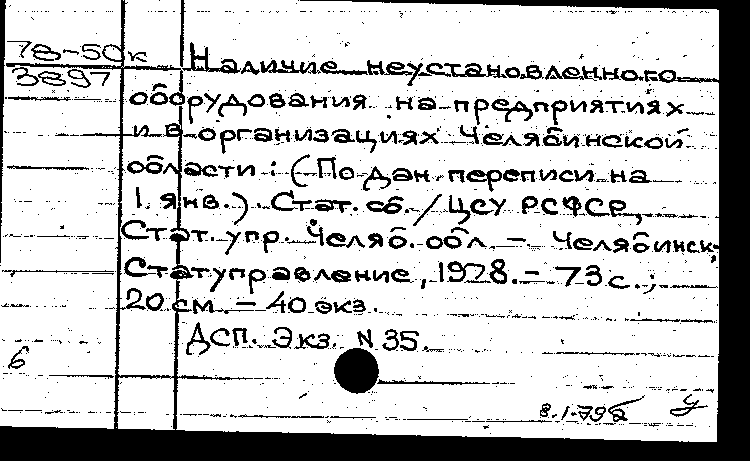 78-50к
3897
Наличие неустановленного
оборудования на предприятиях
и в организациях Челябинской
области: (По дан. переписи на
1 янв.). Стат. сб. / ЦСУ РСФСР,
Стат. упр. Челяб. обл. - Челябинск,
Статуправление, 1978. - 73 с.;
20 см. - 40 экз.
ДСП. Экз. N 35.
6
8.1.79
У